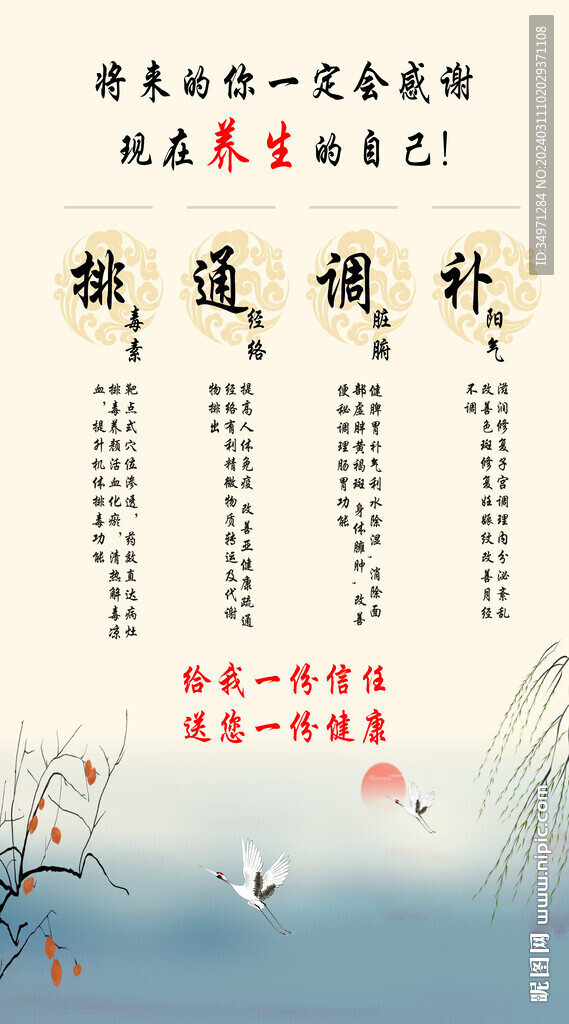 将来的你一定会感谢
现在养生的自己!
排
毒素
靶点式穴位渗透，药效直达病灶
排毒养颜活血化瘀，清热解毒凉
血，提升机体排毒功能
通
经络
提高人体免疫 改善亚健康疏通
经络有利精微物质转运及代谢
物排出
调
脏腑
健脾胃补气利水除湿，消除面
部虚胖黄褐斑，身体臃肿，改善
便秘调理肠胃功能
补
阳气
滋润修复子宫调理内分泌紊乱
改善色斑修复妊娠纹改善月经
不调
给我一份信任
送您一份健康
ID:34971284 NO:20240311102029371108
昵图网 www.nipic.com